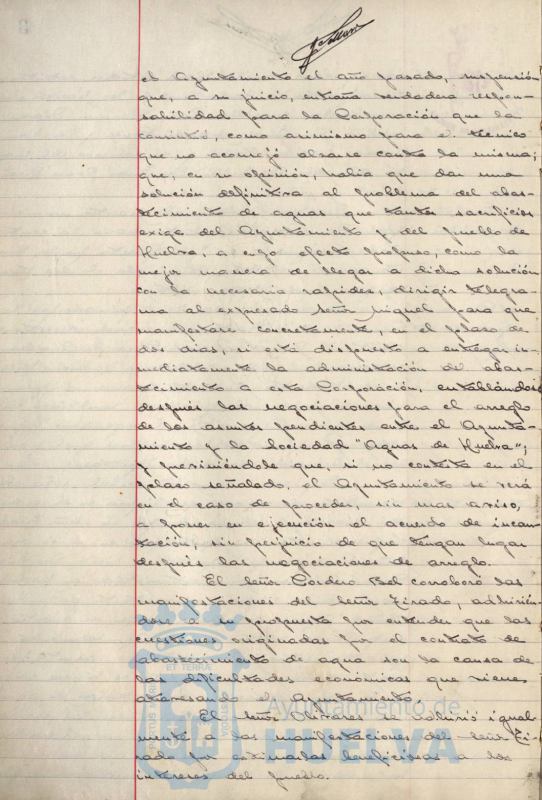 el Ayuntamiento el año pasado, suspensión
que, a su juicio, entraña verdadera respon-
sabilidad para la Corporación que la
consintió, como asimismo para el técnico
que no aconsejó alzarse contra la misma;
que, en su opinión, había que dar una
solución definitiva al problema del abas-
tecimiento de aguas que tantos sacrificios
exige del Ayuntamiento y del pueblo de
Huelva, a cuyo efecto propuso, como la
mejor manera de llegar a dicha solución
con la necesaria rapidez, dirigir telegra-
ma al expresado Señor Miguel para que
manifestara concretamente, en el plazo de
dos días, si está dispuesto a entregar in-
mediatamente la administración de abas-
tecimiento a esta Corporación, entablándose
después las negociaciones para el arreglo
de los asuntos pendientes entre el Ayunta-
miento y la Sociedad "Aguas de Huelva";
y previniéndole que, si no contesta en el
plazo señalado, el Ayuntamiento se verá
en el caso de proceder, sin mas aviso,
a poner en ejecución el acuerdo de incau-
tación, sin perjuicio de que tengan lugar
después las negociaciones de arreglo.
El Señor Cordero Bel corroboró las
manifestaciones del Señor Tirado, adhirién-
dose a su propuesta por entender que las
cuestiones originadas por el contrato de
abastecimiento de agua son la causa de
las dificultades económicas que viene
atravesando el Ayuntamiento.
El Señor Olivares se adhirió igual-
mente a las manifestaciones del Señor Ti-
rado por estimarlas beneficiosas a los
intereses del pueblo.
Ayuntamiento de
HUELVA